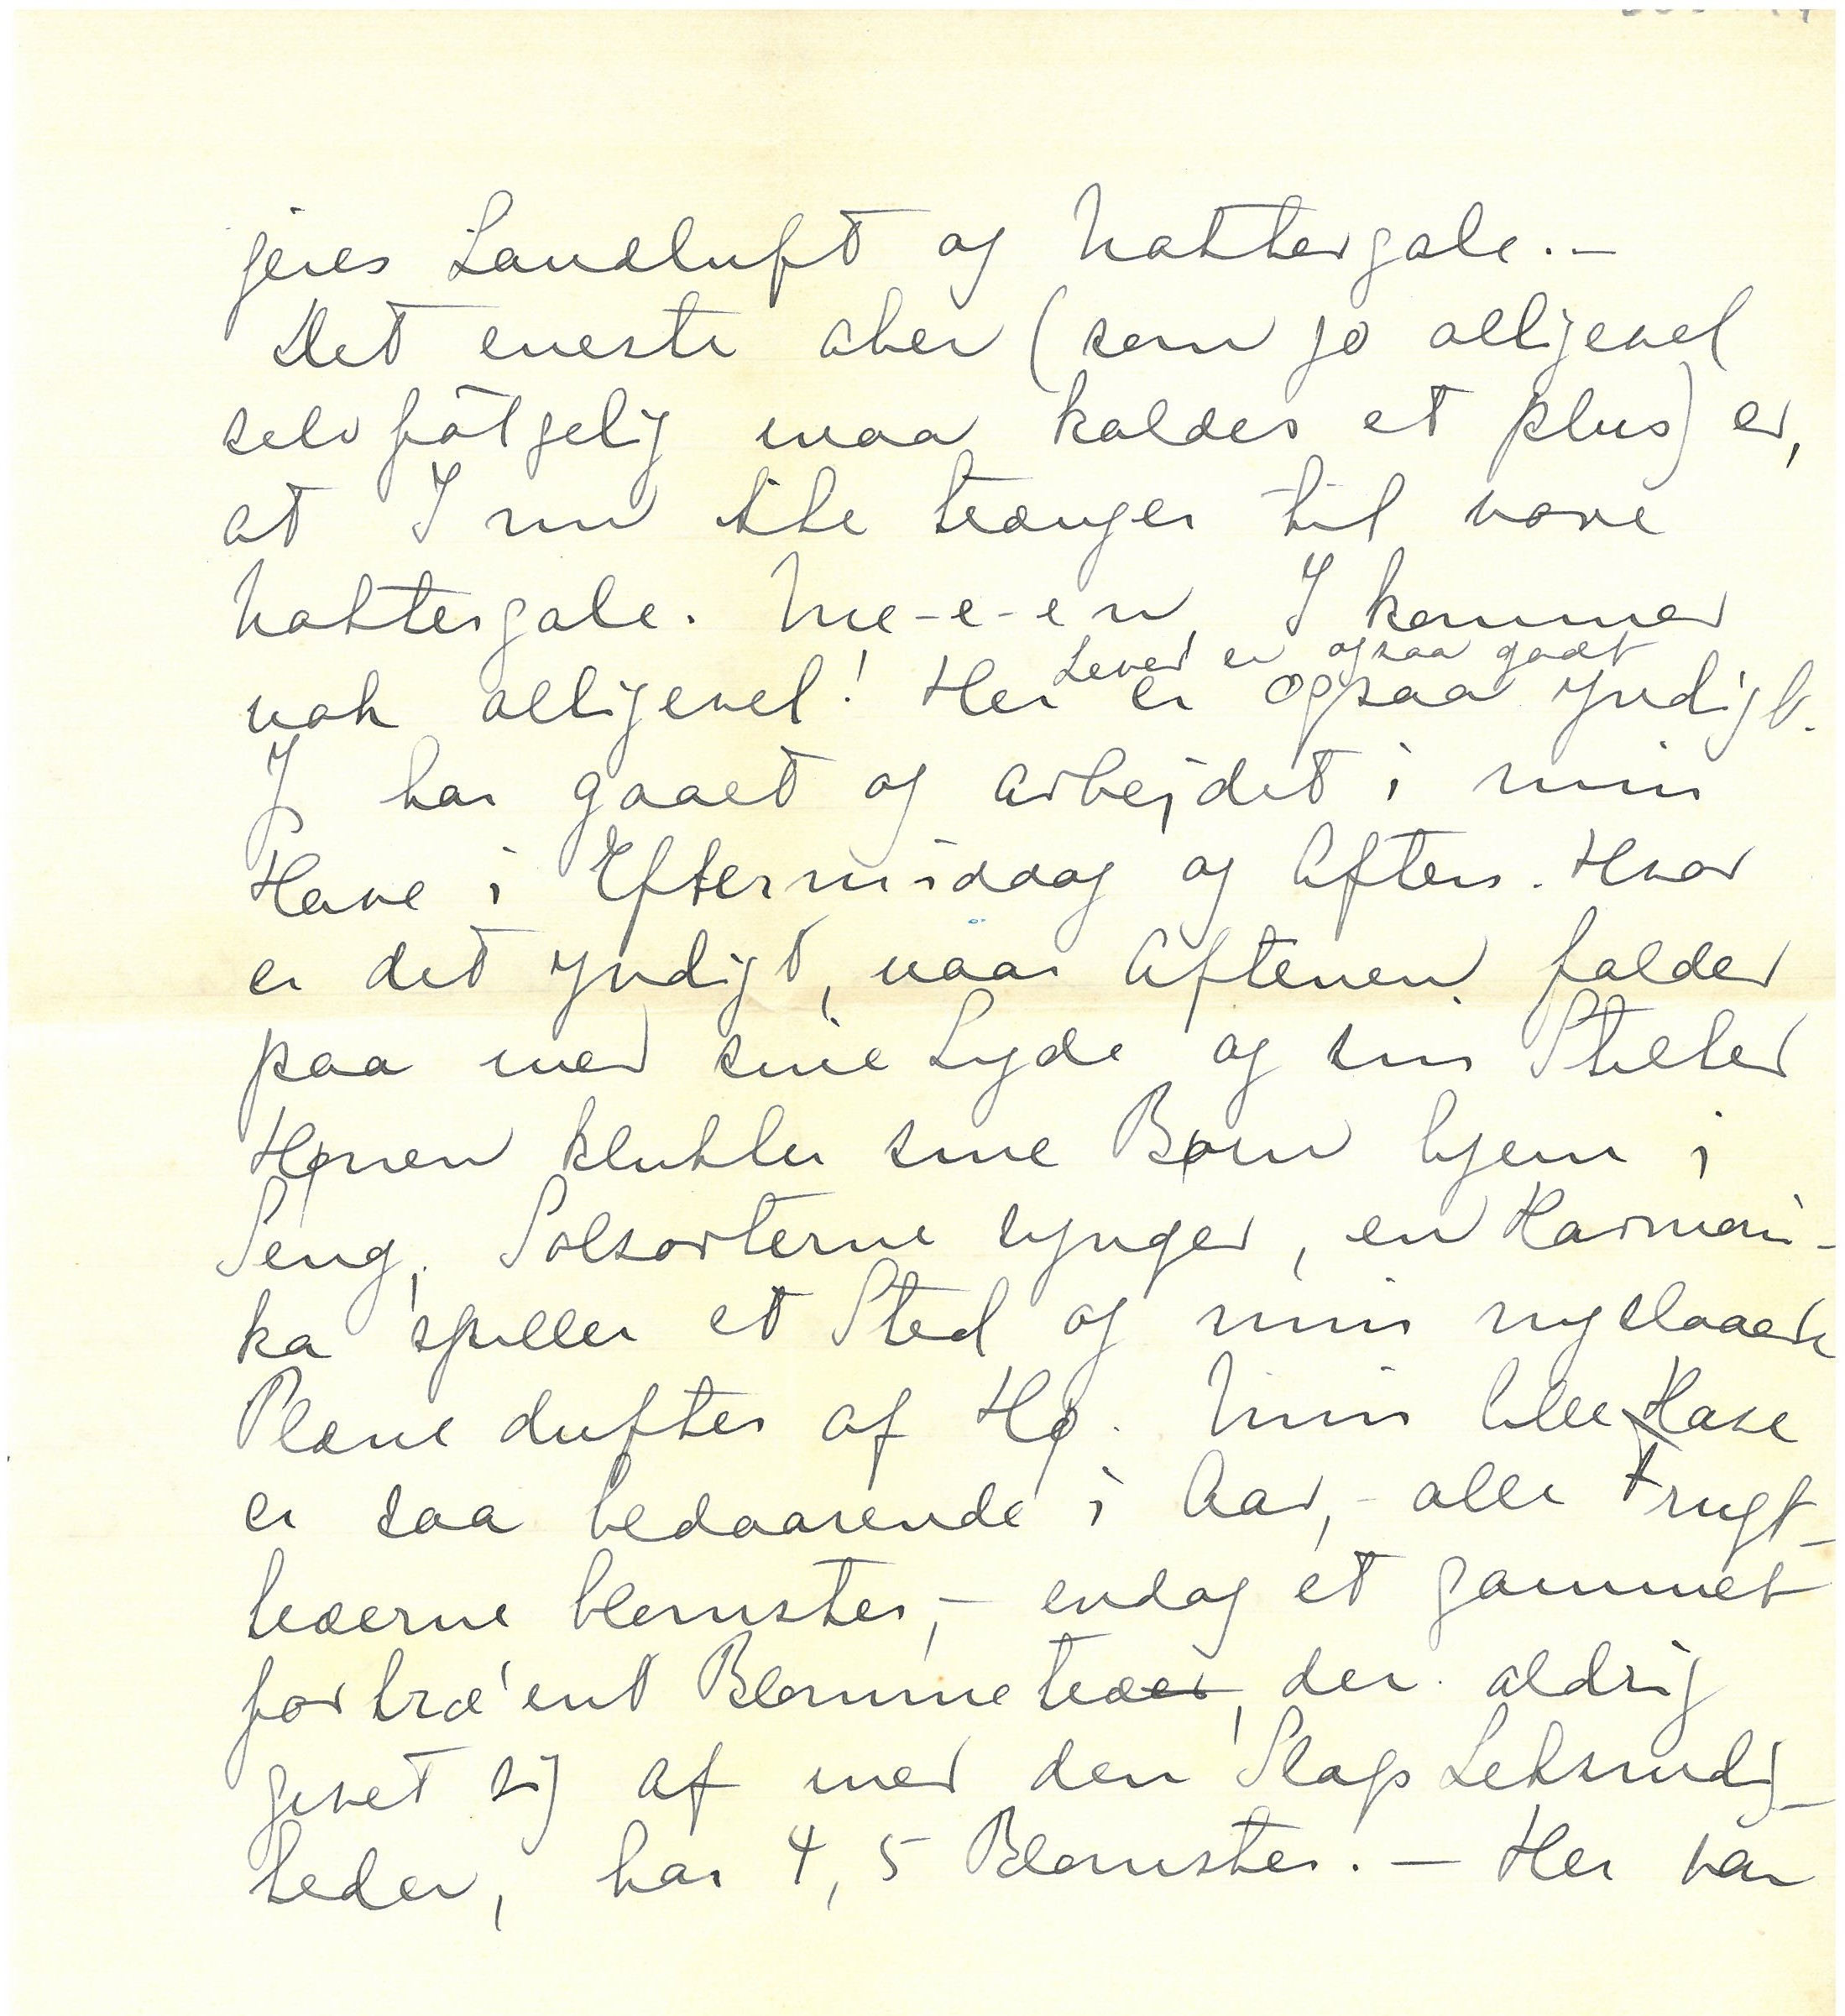 jeres Landluft og Nattergale. –
Det eneste aber (som jo alligevel
selvfølgelig maa kaldes et plus) er,
at I nu ikke trænger til vore
Nattergale. Me-e-en, I kommer
nok alligevel! Her er ogsaa yndigt.
Lever er ogsaa godt
Jg har gaaet og arbejdet i min
Have i Eftermiddag og Aften. Hvor
er det yndigt, naar Aftenen falder
paa med sine Lyde og sin Stilhed
Hønen klukker sine Børn hjem i
Seng, Solsorterne synger, en Harmoni-
ka spiller et Sted og min nyslaaede
Plæne dufter af Hø. Min lille Have
er saa bedaarende i Aar, – alle Frugt-
træerne blomster, – endog et gammelt
fortræ'ent Blommetræ, der aldrig
givet sig af med den Slags Letsindig-
heder, har 4, 5 Blomster. – Her var